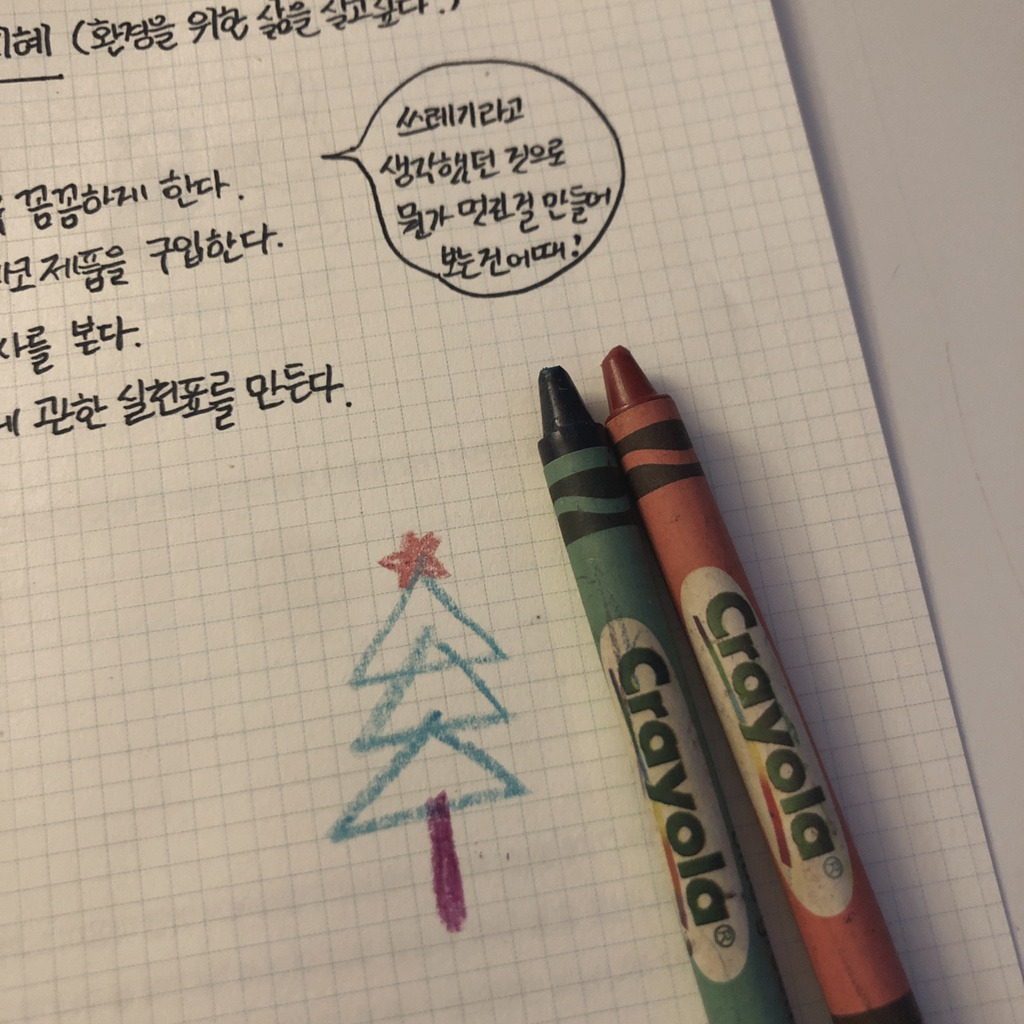 지혜 (환경을 위한 삶을 살고싶다.)
쓰레기라고
생각했던 것으로
뭔가 멋진걸 만들어
보는건어때!
꼼꼼하게 한다.
제품을 구입한다.
사를 본다.
관한 실천표를 만든다.
Crayola
Crayola